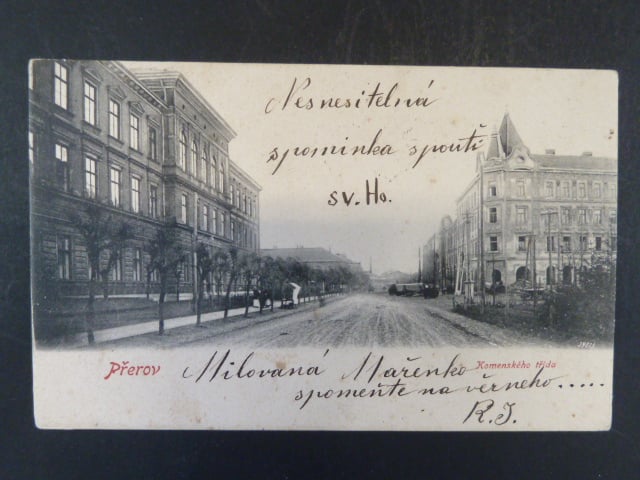 Nesnesitelná
spominka spouti
sv. Ho.
Přerov
Komenského třída
Milovaná Mařenko
spomeňte na věrneho.....
R. J.